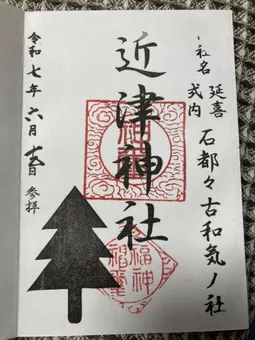 社名
延喜
式内
石都々古和気ノ社
近津神社
令和七年六月十五日
参拝
福神